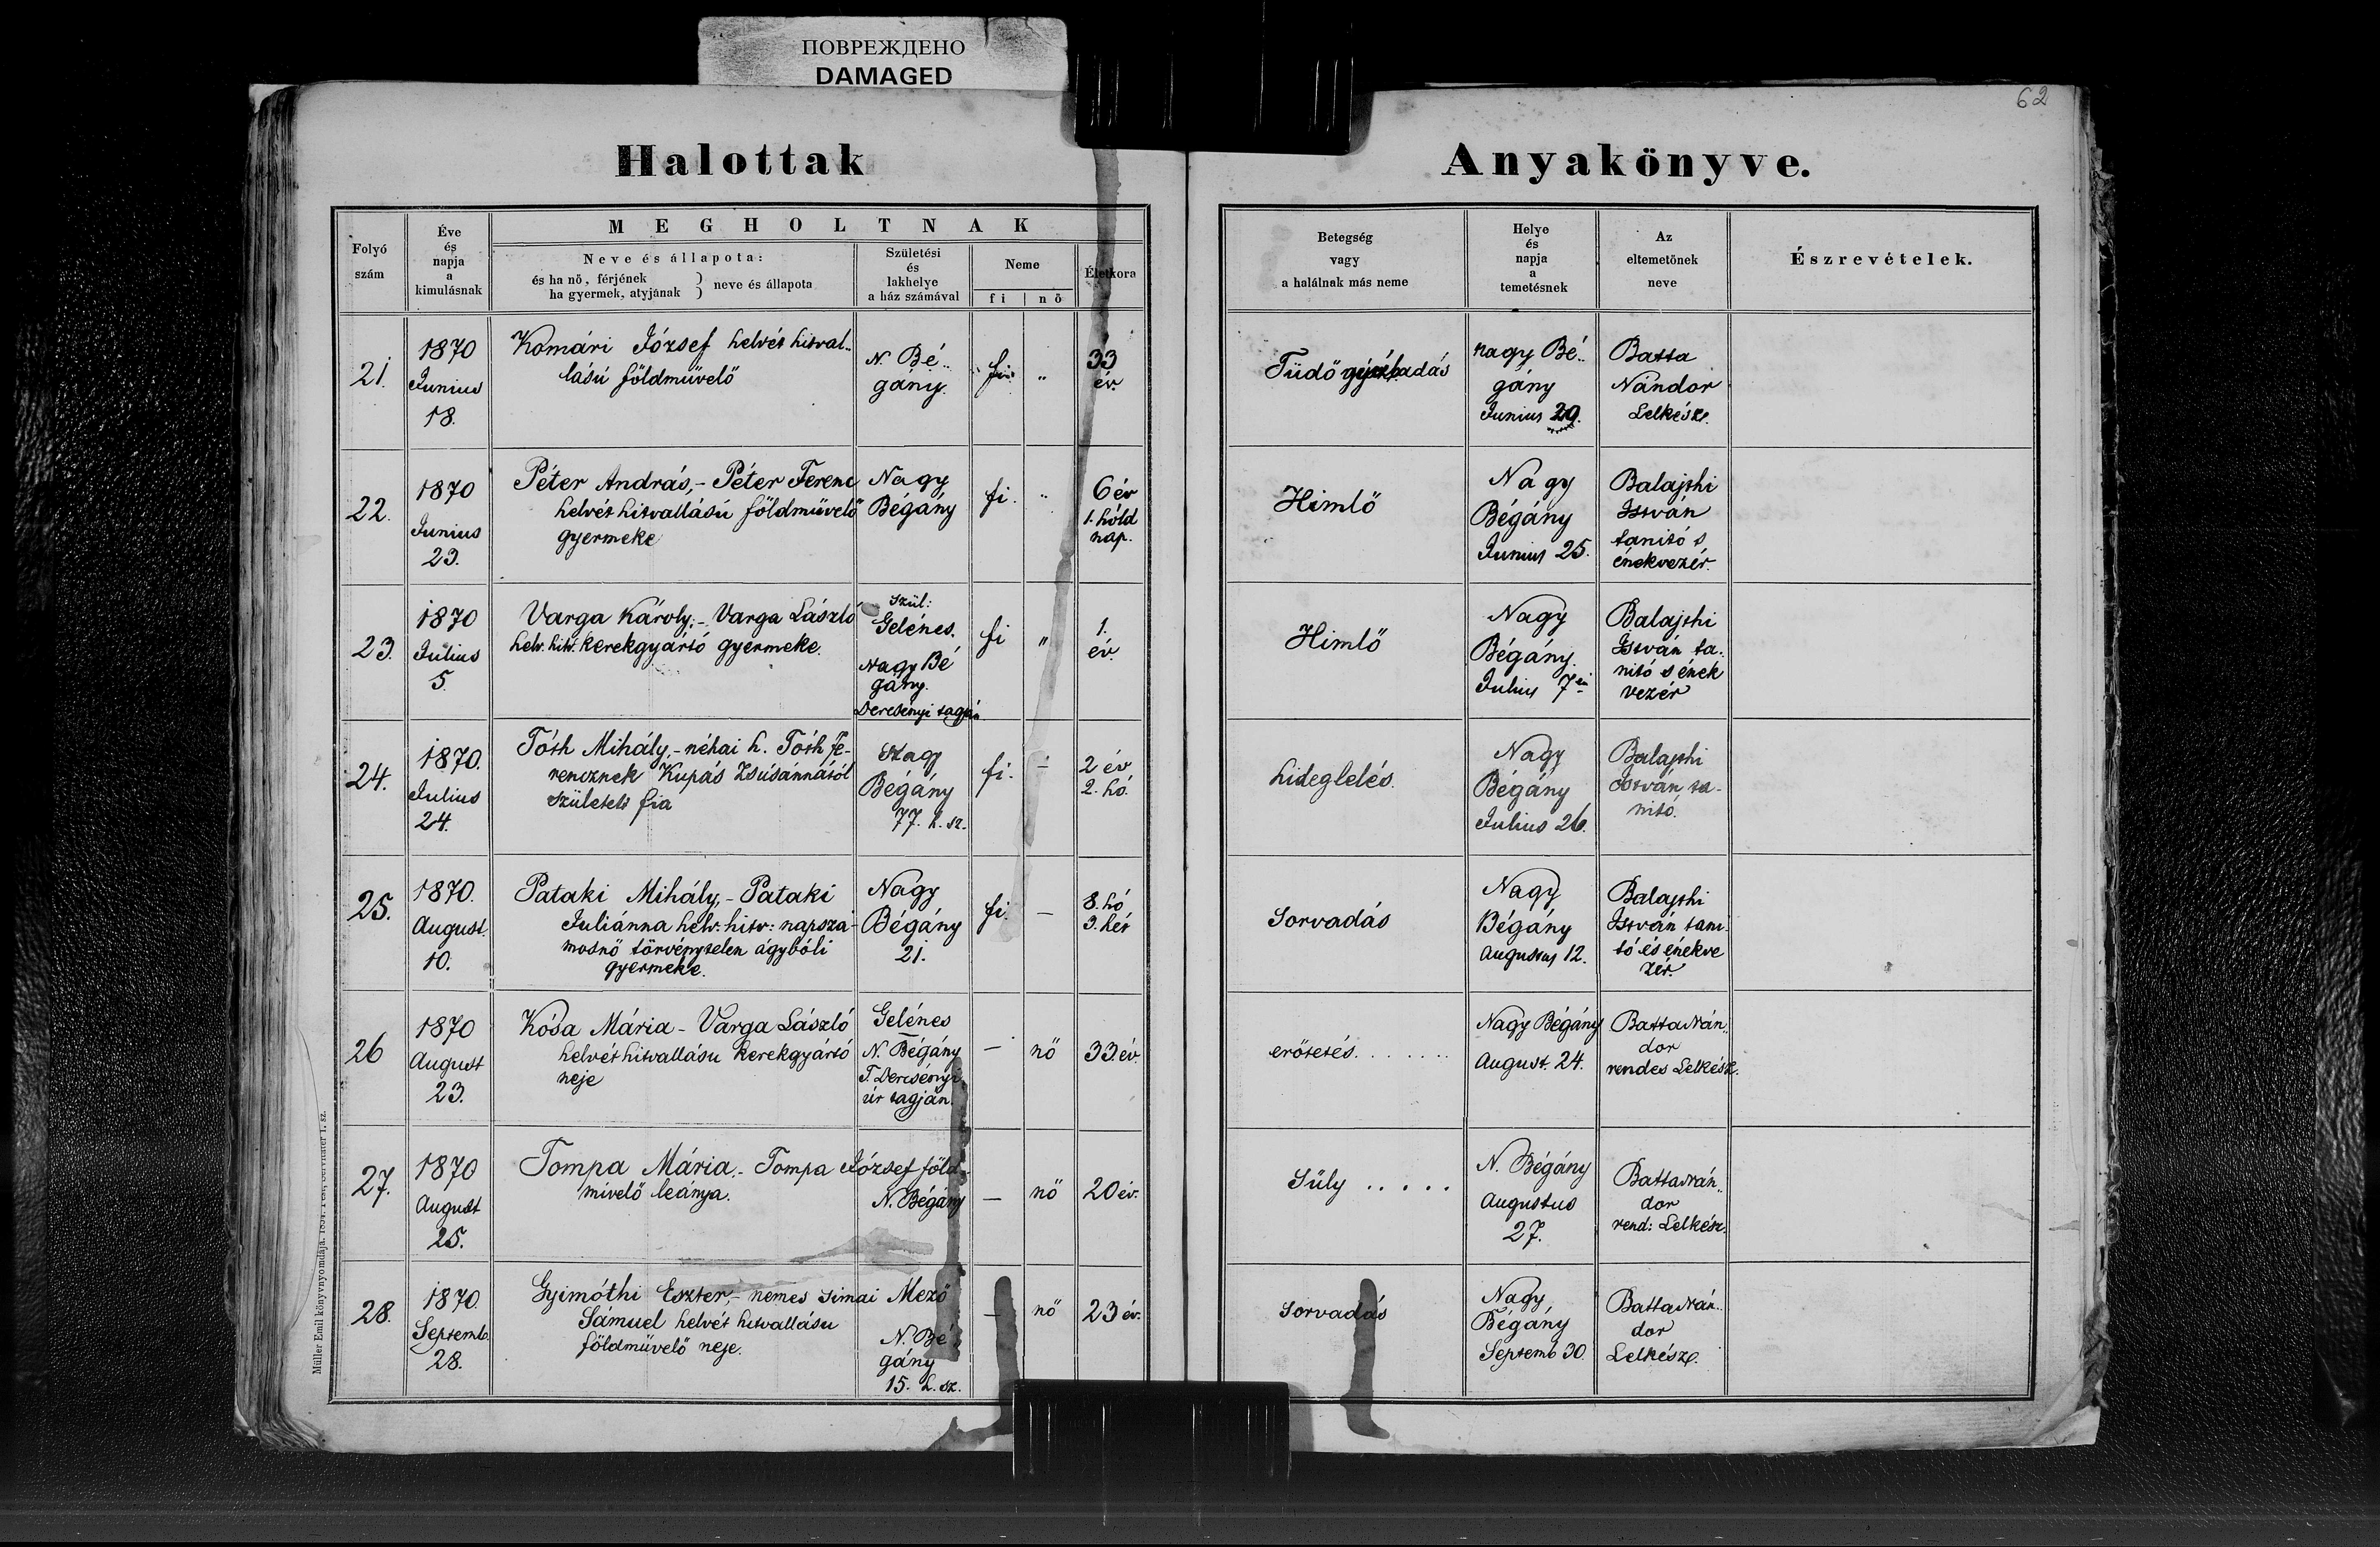 ПОВРЕЖДЕНО
DAMAGED
62
Halottak
Anyakönyve.
Folyó
szám
Éve
és
napja
a
kimulásnak
MEGHOLTNAK
Neve és állapota:
és ha nő, férjének
ha gyermek, atyjának } neve és állapota
Születési
és
lakhelye
a ház számával
Neme
fi | nő
Életkora
Betegség
vagy
a halálnak más neme
Helye
és
napja
a
temetésnek
Az
eltemetőnek
neve
Észrevételek.
21.
1870
Junius
18.
Komári József helvét hitval..
lású földmüvelő
N. Bé..
gány.
fi.
"
33
év
Tüdő
nagy Bé..
gány
Junius 20.
Batta
Nándor
Lelkész.
22.
1870
Junius
23.
Péter András,- Péter Ferenc
helvét hitvallású földmüvelő
gyermeke
Nagy
Bégány
fi.
"
6 év
1. hóld
nap.
Himlő
Nagy
Bégány
Junius 25.
Balajthi
István
tanitó s
énekvezér.
23.
1870
Július
5.
Varga Károly.- Varga László
helv. hitv. kerekgyártó gyermeke.
Szül:
Gelénes.
Nagy Bé
gány.
Dercsényi tagján
fi
"
1.
év.
Himlő
Nagy
Bégány.
Julius 7én
Balajthi
István ta.
nitó s ének
vezér
24.
1870.
Julius
24.
Tóth Mihály,- néhai h. Tóth Fe-
rencznek Kupás Zsúsánnától
született fia
Nagy
Bégány
77. h. sz.
fi.
-
2 év
2. hó.
hideglelés.
Nagy
Bégány
Julius 26.
Balajthi
István ta-
nitó.
25.
1870.
August.
10.
Pataki Mihály,- Pataki
Juliánna helv. hitv: napszá-
mosnő törvénytelen ágybóli
gyermeke.
Nagy
Bégány
21.
fi.
—
8. hó
3. hét
Sorvadás
Nagy
Bégány
Augustus 12.
Balajthi
István tani-
tó és énekve
zér.
26
1870
August
23.
Kósa Mária - Varga László
helvét hitvallásu kerekgyártó
neje
Gelénes
N. Bégány
T. Dercsényi
úr tagján.
—
nő
33 év.
erőtetés.......
Nagy Bégány
August. 24.
Batta Nán..
dor
rendes Lelkész.
27.
1870
August
25.
Tompa Mária.- Tompa József föld-
mivelő leánya.
N. Bégány
—
nő
20 év.
Süly .....
N. Bégány
Augustus
27.
Batta Nán..
dor
rend: Lelkész.
28.
1870.
Septemb.
28.
Gyimóthi Eszter,- nemes Simai Mező
Sámuel helvét hitvallásu
földmüvelő neje.
N. Bé
gány
15. h. sz.
—
nő
23 év.
Sorvadás
Nagy
Bégány
Septemb 30.
Batta Nán..
dor
Lelkész.
Müller Emil könyvnyomdája. 1854.